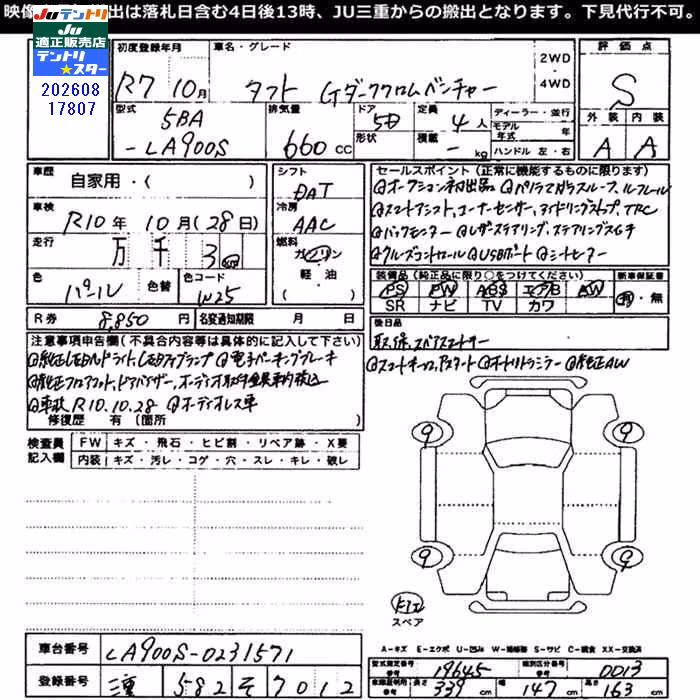 映像 出は落札日含む4日後13時、JU三重からの搬出となります。下見代行不可。
JUテントリ
JU適正販売店
テントリ★スター
202608
17807
初度登録年月
R7 10月
車名・グレード
タフト Gダーククロムベンチャー
2WD
・
4WD
評価点
S
型式
5BA
-LA900S
排気量
660 cc
ドア
5D
形状
定員
4 人
積載
- kg
ディーラー・並行
モデル年式 年
ハンドル 左・右
外装 内装
A A
車歴
自家用・( )
車検
R10年 10月(28日)
走行
万 千 3 km
色
パール
色替
色コード
W25
シフト
DAT
冷房
AAC
燃料
ガソリン
軽油
( )
セールスポイント(正常に機能するものに限ります)
◎オークション初出品 ◎パノラマガラスルーフ、ルーフレール
◎スマートアシスト、コーナーセンサー、アイドリングストップ、TRC
◎バックモニター ◎レザーステアリング、ステアリングスイッチ
◎クルーズコントロール ◎USBポート ◎シートヒーター
装備品(純正品に限り○をつけてください)
PS PW ABS エアB AW
SR ナビ TV カワ
新車保証書
有・無
R券 8,850 円
名変通知期限 月 日
後日品
取、保、スペアスマートキー
注意事項申告欄(不具合内容等は具体的に記入して下さい)
◎純正LEDヘッドライト、LEDフォグランプ ◎電子パーキングブレーキ
◎純正フロアマット、ドアバイザー、オーディオ取付金具車内積込
◎車検R10.10.28 ◎オーディオレス車
修復歴 有(箇所 )
◎スマートキー、プッシュスタート ◎オートリトラミラー ◎純正AW
検査員記入欄
FW キズ・飛石・ヒビ割・リペア跡・X要
内装 キズ・汚レ・コゲ・穴・スレ・キレ・破レ
9 9
9 9
スペア
A-キズ E-エクボ U-凹ミ W-補修跡 S-サビ C-腐食 XX-交換済
車台番号
LA900S-0231571
登録番号
三重 582 そ 7012
型式指定番号 参考
19645
類別区分番号 参考
0013
車庫証明用 参考
長さ 339 cm 幅 147 cm 高さ 163 cm